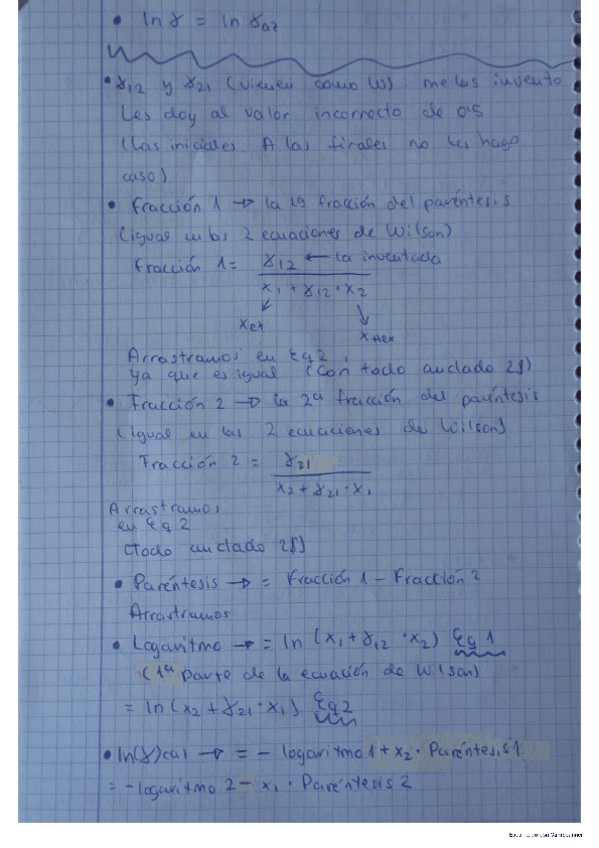 • ln γ = ln γaz
• γ12 y γ21 (vienen como W): me las invento
Les doy al valor incorrecto de 0'5
(Las iniciales. A las finales no les hago
caso)
• Fracción 1 → la 1ª fracción del paréntesis
(igual en las 2 ecuaciones de Wilson)
Fracción 1 = γ12 ← la inventada
x1 + γ12 · x2
xet
xHex
Arrastramos en Eq 2,
ya que es igual (con todo anclado 2$)
• Fracción 2 → la 2ª fracción del paréntesis
(igual en las 2 ecuaciones de Wilson)
Fracción 2 = γ21
x2 + γ21 · x1
Arrastramos
en Eq 2
(Todo anclado 2$)
• Paréntesis → = Fracción 1 - Fracción 2
Arrastramos
• Logaritmo → = ln (x1 + γ12 · x2) Eq 1
(1ª parte de la ecuación de Wilson)
= ln (x2 + γ21 · x1) Eq 2
• ln(γ)cal → = - logaritmo 1 + x2 · Paréntesis 1
= - logaritmo 2 - x1 · Paréntesis 2